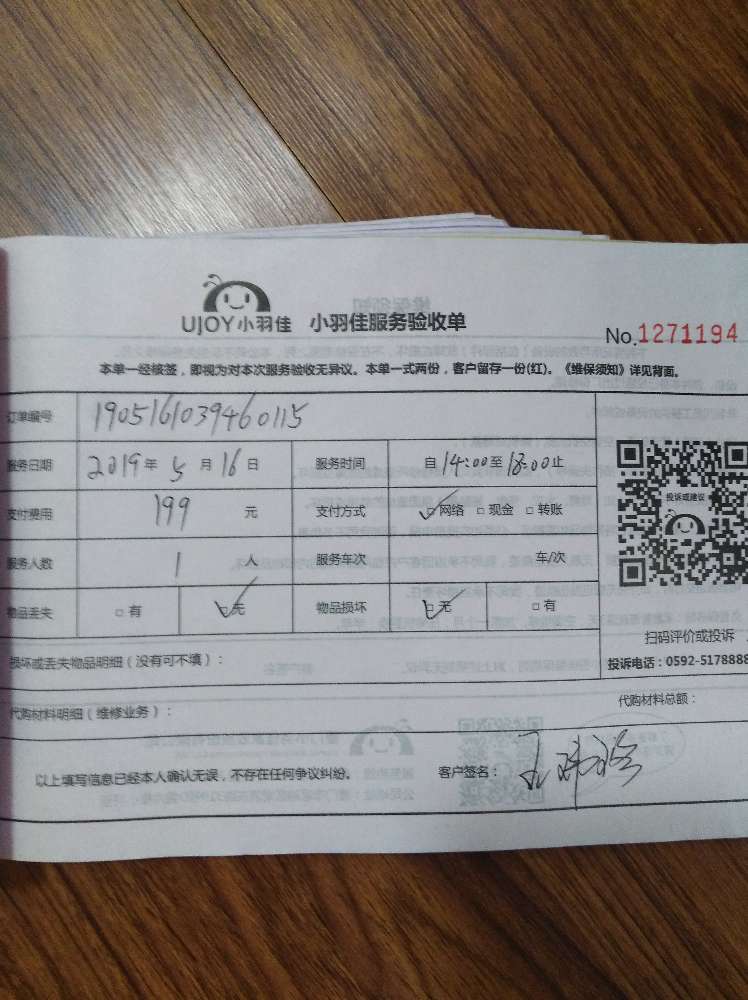 UJOY小羽佳 小羽佳服务验收单
No.1271194
本单一经核签，即视为对本次服务验收无异议。本单一式两份，客户留存一份(红)。《维保须知》详见背面。
订单编号 1905161039460115
服务日期 2019年5月16日 服务时间 自14:00至18:00止
支付费用 199 元 支付方式 网络 现金 转账
服务人数 1 人 服务车次 车/次
物品丢失 有 无 物品损坏 无 有
投诉或建议
扫码评价或投诉
投诉电话：0592-5178888
损坏或丢失物品明细（没有可不填）：
代购材料明细（维修业务）： 代购材料总额：
以上填写信息已经本人确认无误，不存在任何争议纠纷。 客户签名：